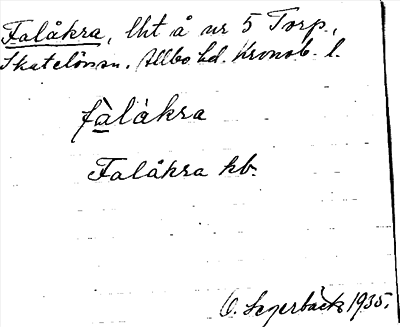 Falåkra, lht å nr 5 Torp,
Skatelövs sn. Allbo hd. Kronob. l.
fàlàkra
Falåkra kb.
O. Segerbäck 1935.